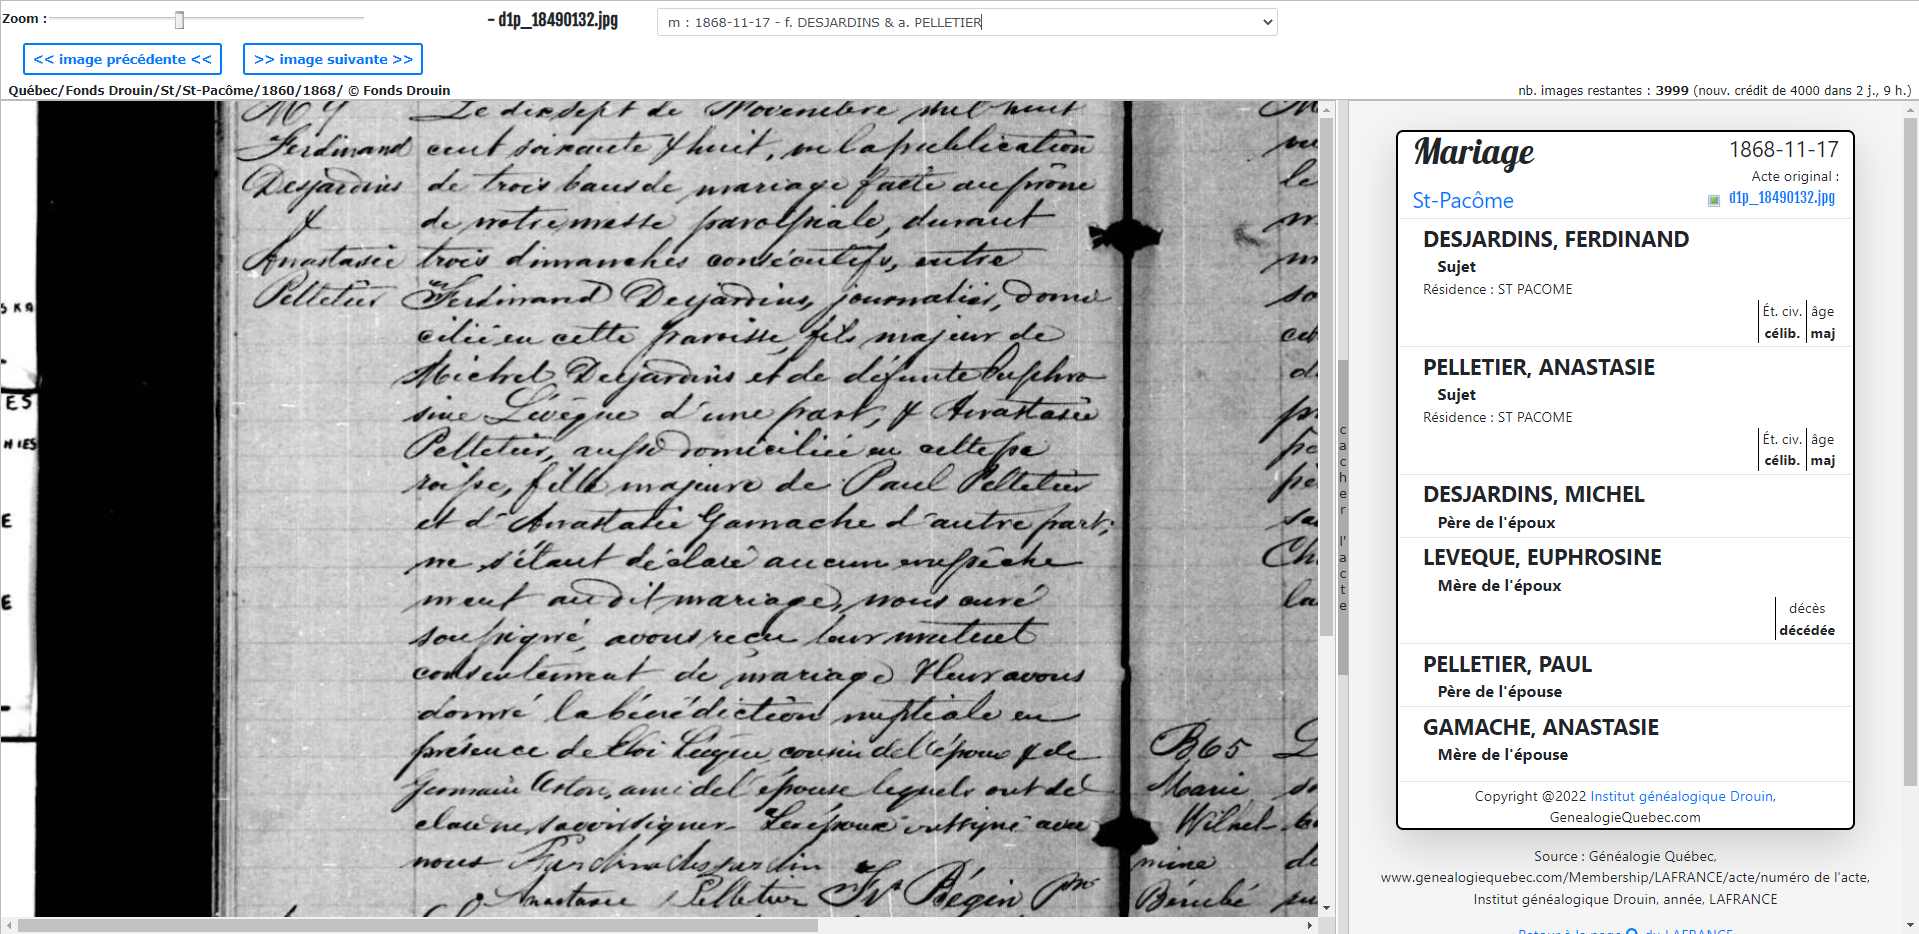 Zoom :
- d1p_18490132.jpg
m : 1868-11-17 - f. DESJARDINS & a. PELLETIER
<< image précédente <<
>> image suivante >>
Québec/Fonds Drouin/St/St-Pacôme/1860/1868/ © Fonds Drouin
nb. images restantes : 3999 (nouv. crédit de 4000 dans 2 j., 9 h.)
Ferdinand
Desjardins
&
Anastasie
Pelletier
Le dix sept de Novembre mil huit
cent soixante & huit, vu la publication
de trois bans de mariage faite au prône
de notre messe paroissiale, durant
trois dimanches consécutifs, entre
Ferdinand Desjardins, journalier, domi
cilié en cette paroisse, fils majeur de
Michel Desjardins et de défunte Euphro
sine Lévêque d'une part, & Anastasie
Pelletier, aussi domiciliée en cette pa
roisse, fille majeure de Paul Pelletier
et d'Anastasie Gamache d'autre part;
ne s'étant déclaré aucun empêche
ment au dit mariage, nous curé
soussigné, avons reçu leur mutuel
consentement de mariage & leur avons
donné la bénédiction nuptiale en
présence de Eloi Lévêque, cousin de l'époux & de
Germain, ami de l'épouse lesquels ont dé
claré ne savoir signer. Les époux ont signé avec
nous
Anastasie Pelletier Bégin Ptre
B65
Marie
Wilhel-
mine
Bérubé
SKA
ES
NIES
E
E
cacher l'acte
Mariage
1868-11-17
Acte original :
St-Pacôme
d1p_18490132.jpg
DESJARDINS, FERDINAND
Sujet
Résidence : ST PACOME
Ét. civ. âge
célib. maj
PELLETIER, ANASTASIE
Sujet
Résidence : ST PACOME
Ét. civ. âge
célib. maj
DESJARDINS, MICHEL
Père de l'époux
LEVEQUE, EUPHROSINE
Mère de l'époux
décès
décédée
PELLETIER, PAUL
Père de l'épouse
GAMACHE, ANASTASIE
Mère de l'épouse
Copyright @2022 Institut généalogique Drouin,
GenealogieQuebec.com
Source : Généalogie Québec,
www.genealogiequebec.com/Membership/LAFRANCE/acte/numéro de l'acte,
Institut généalogique Drouin, année, LAFRANCE